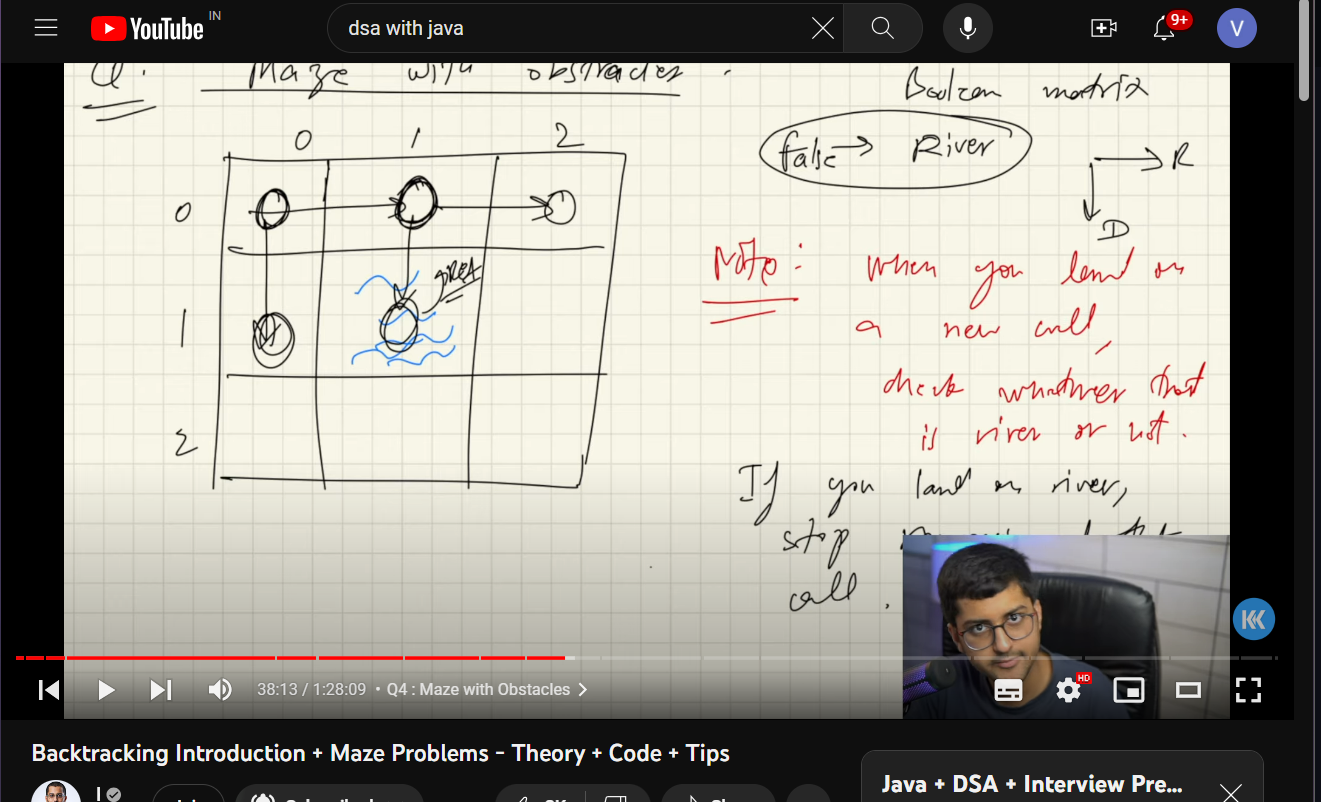 YouTube IN
dsa with java
9+
V
Q. Maze with obstracles.
Boolean matrix
0 1 2
false → River
R
D
0
1
2
Note: When you land on
a new cell,
check whatever that
is river or not.
If you land on river,
stop
call.
HD
38:13 / 1:28:09 • Q4 : Maze with Obstacles
Backtracking Introduction + Maze Problems - Theory + Code + Tips
Java + DSA + Interview Pre...